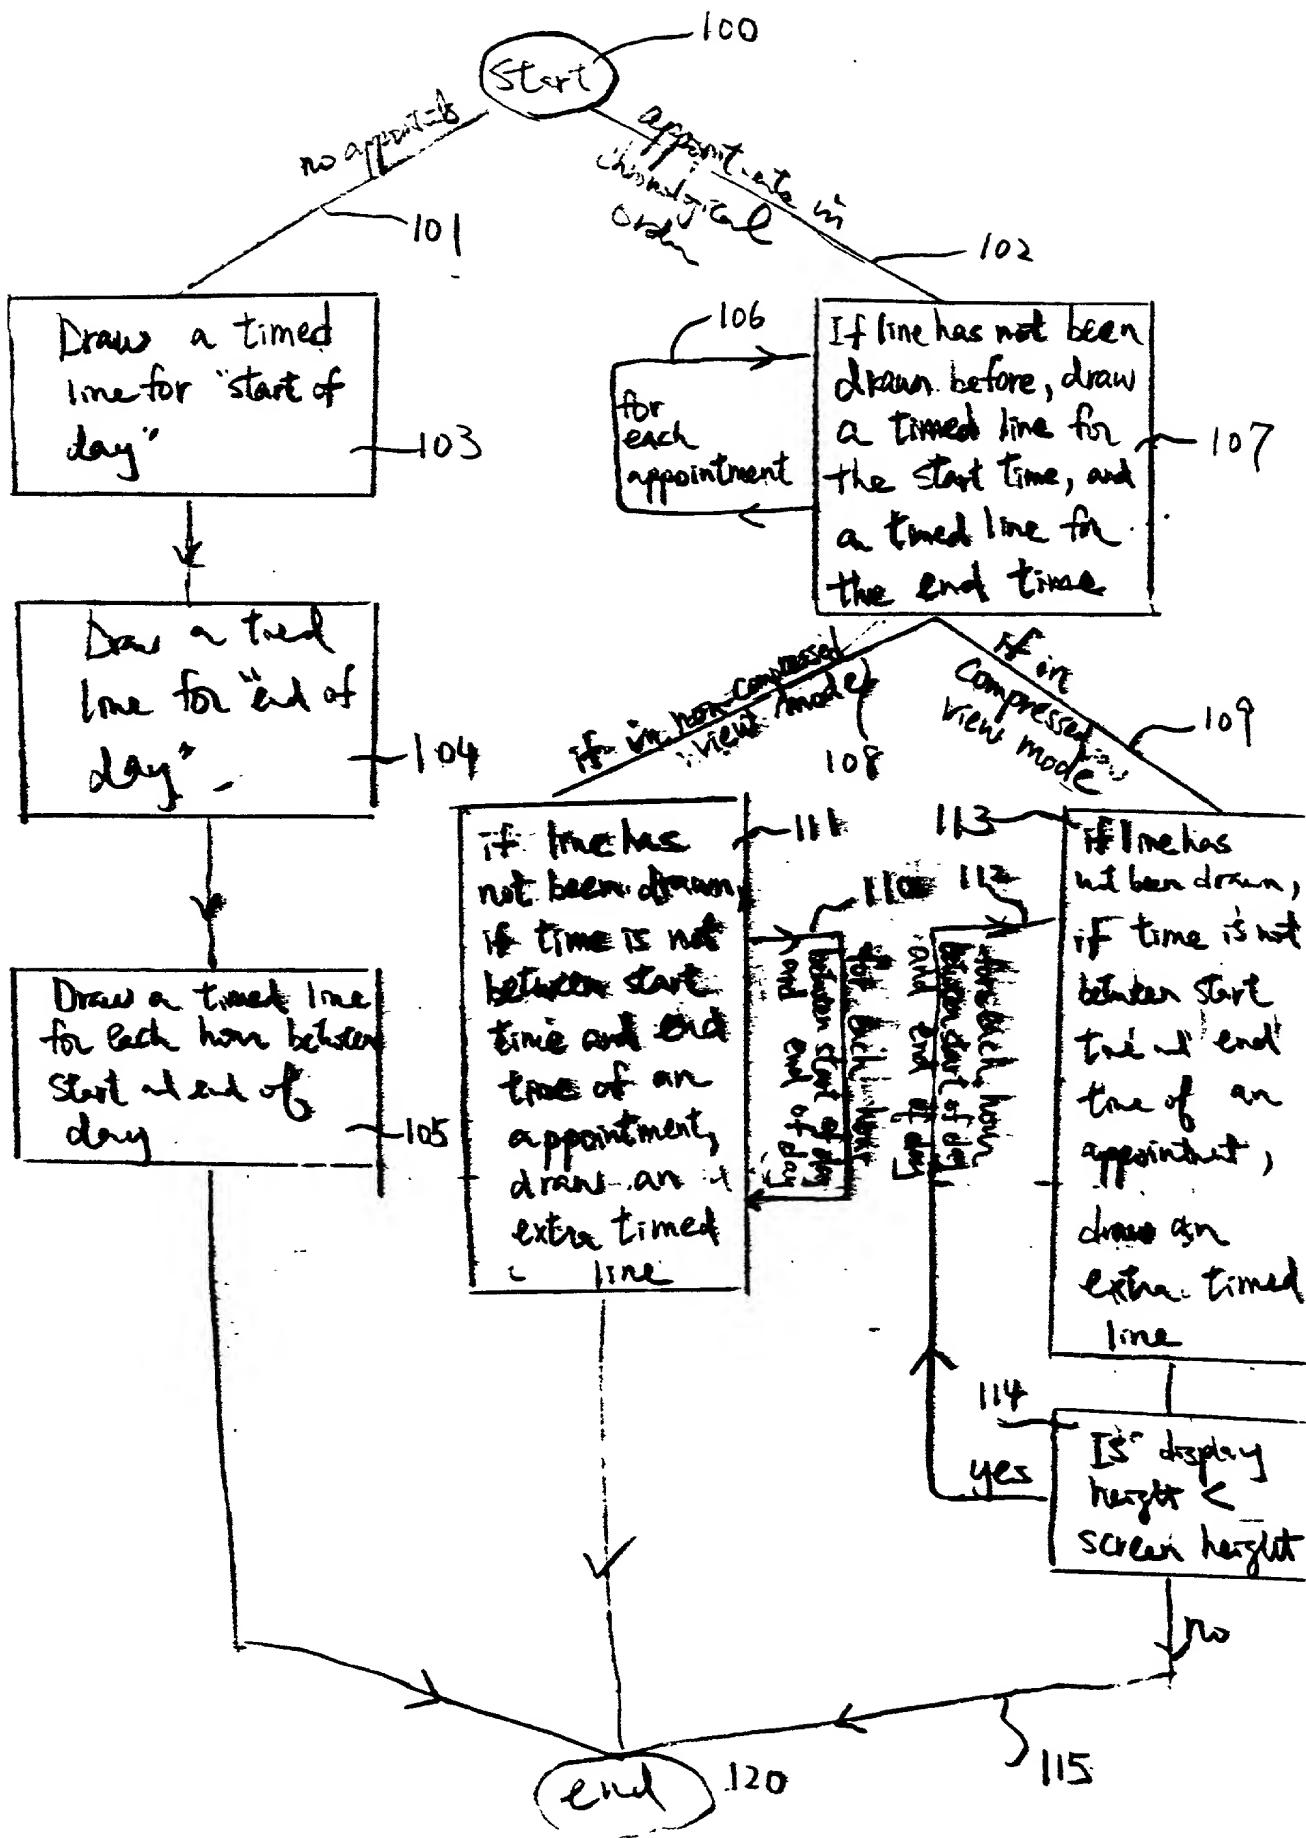 100
Start
no appoint-ts
appoint-ents in
chronological
order
101
102
Draw a timed
line for "start of
day"
103
106
for
each
appointment
If line has not been
drawn before, draw
a timed line for
the start time, and
a timed line for
the end time
107
Draw a timed
line for "end of
day"
104
if in non-compressed
view mode
108
if in
compressed
view mode
109
Draw a timed line
for each hour between
start and end of
day
105
if line has
not been drawn,
if time is not
between start
time and end
time of an
appointment,
draw an
extra timed
line
111
110
for each hour
between start of day
and end of day
113
112
for each hour
between start of day
and end of day
if line has
not been drawn,
if time is not
between start
time and end
time of an
appointment,
draw an
extra timed
line
114
Is display
height <
screen height
yes
no
115
end
120